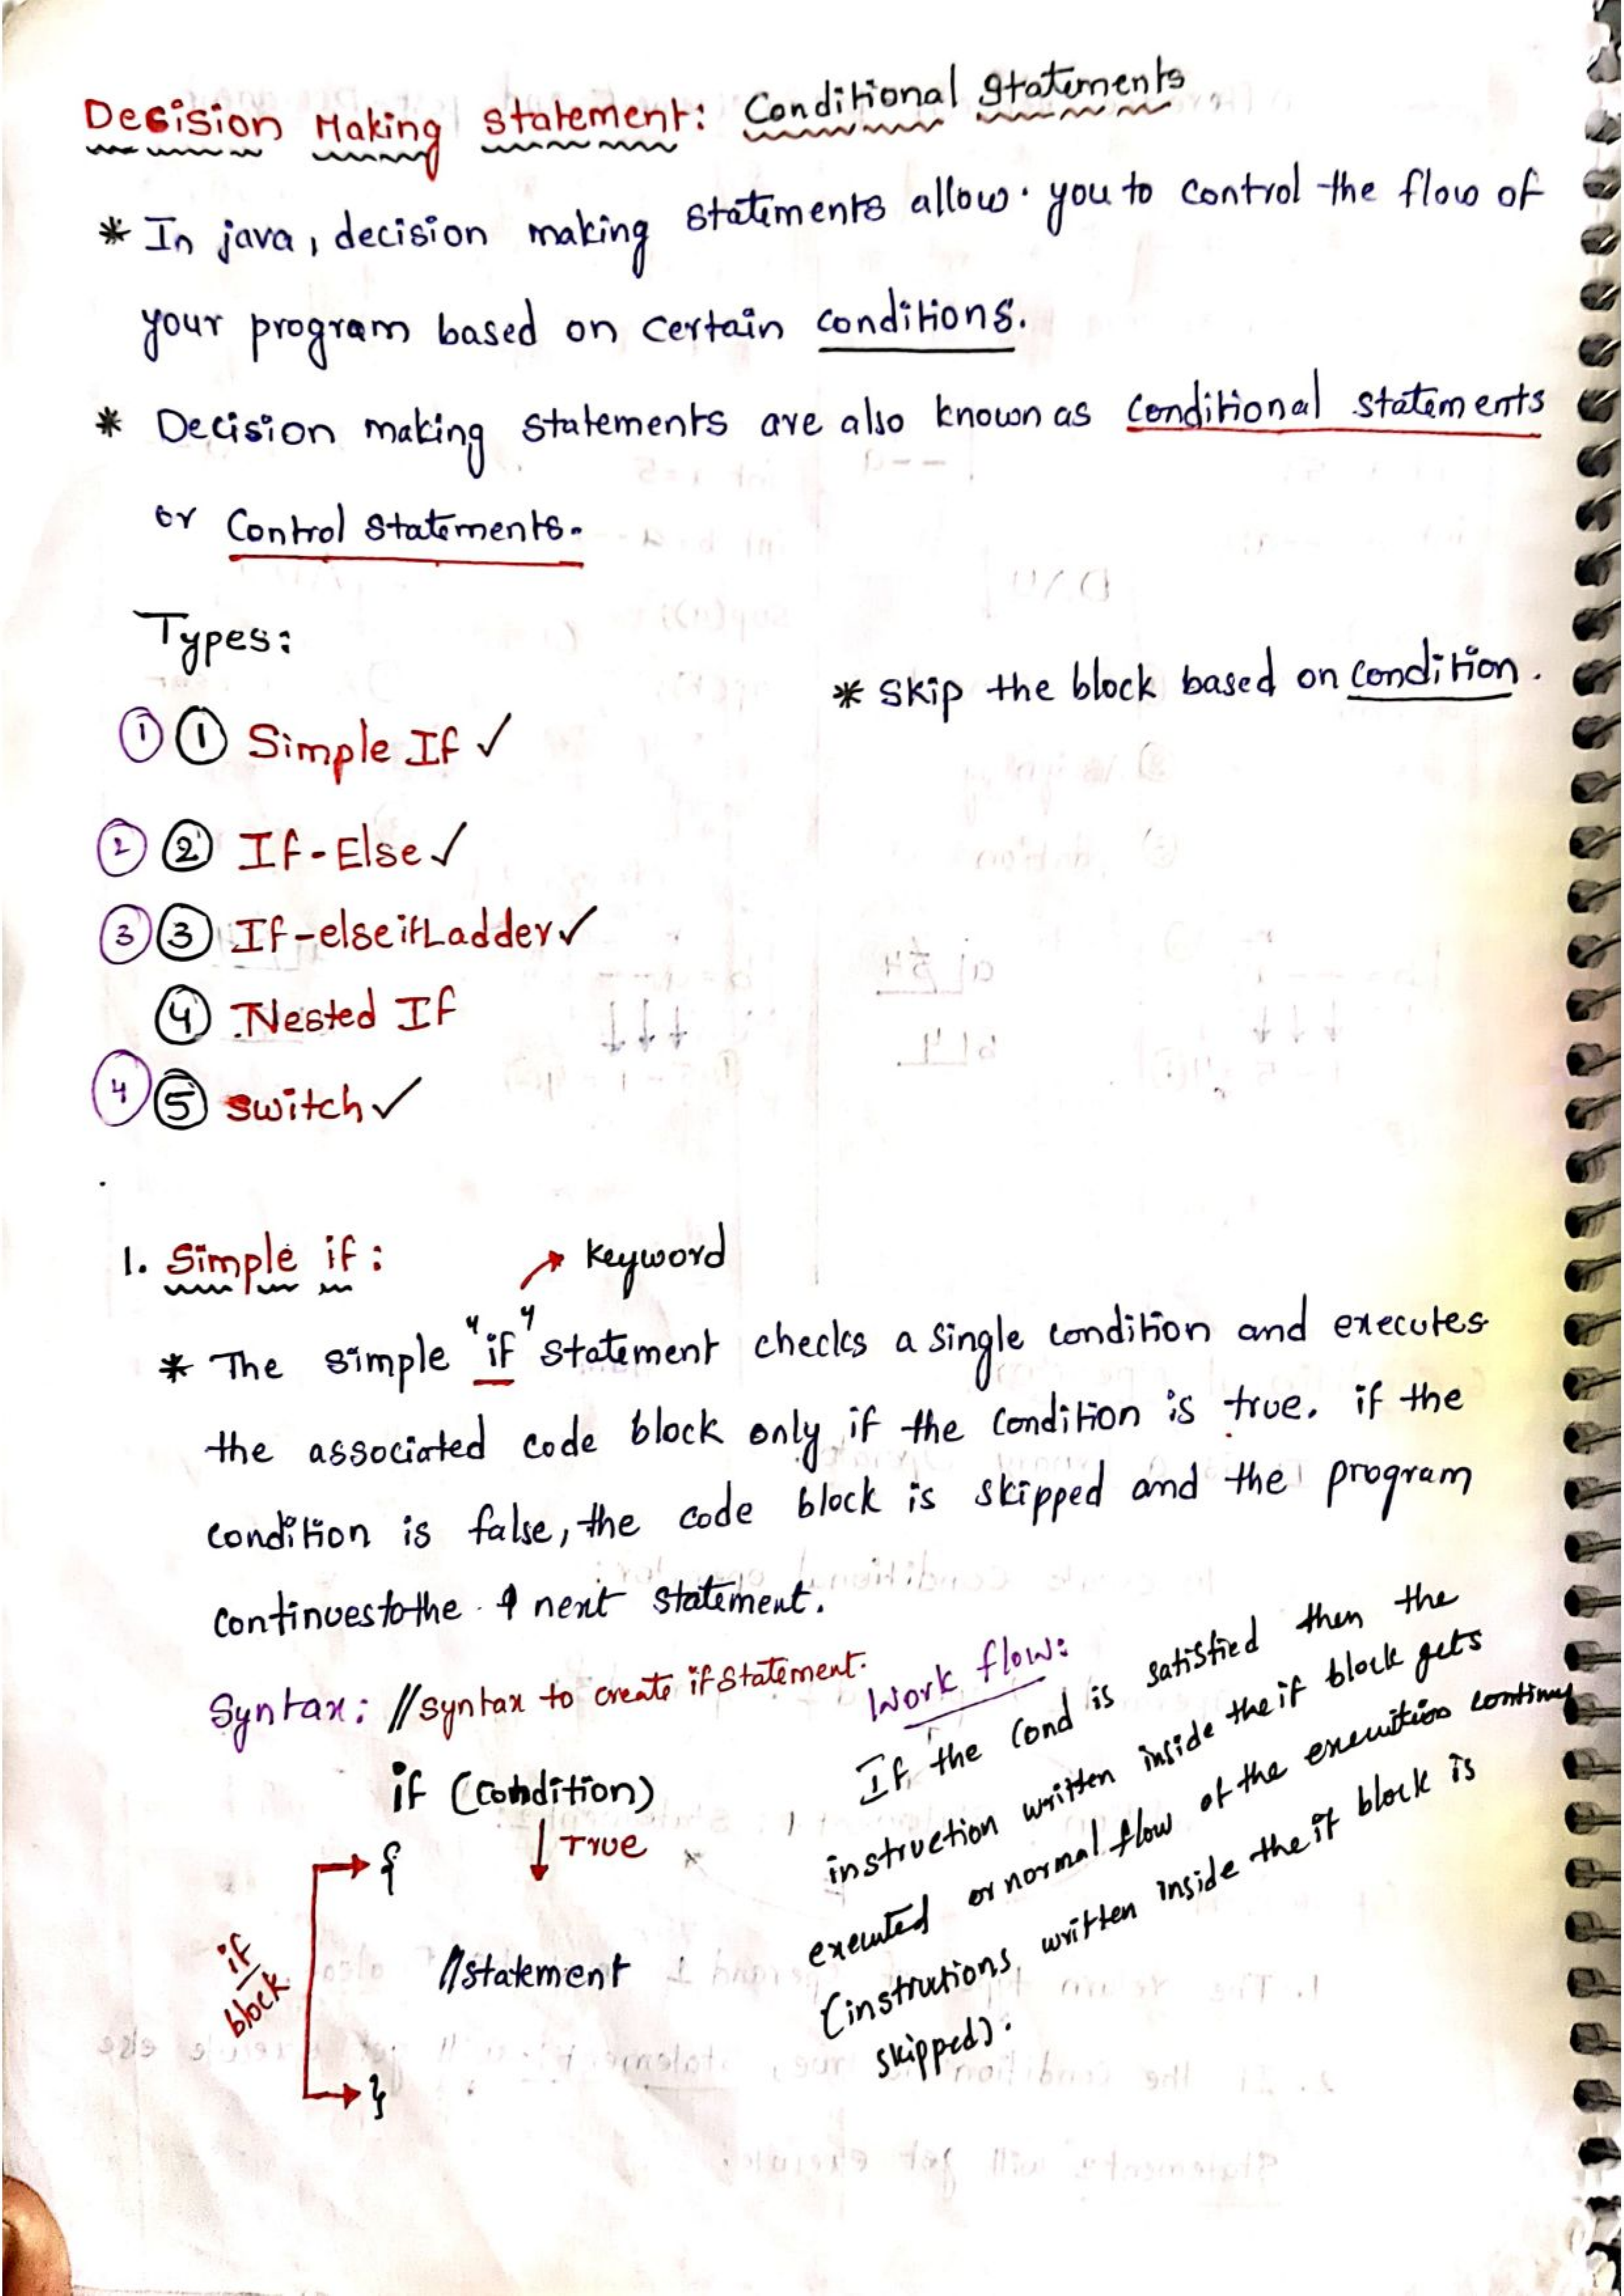 Decision Making statement: Conditional statements
* In java, decision making statements allow. you to control the flow of
your program based on certain conditions.
* Decision making statements are also known as conditional statements
or Control statements.
Types:
* Skip the block based on condition.
① ① Simple If ✓
② ② If-Else ✓
③ ③ If-else if Ladder ✓
④ Nested If
④ ⑤ switch ✓
1. Simple if:
→ keyword
* The simple "if" statement checks a single condition and executes
the associated code block only if the condition is true. if the
condition is false, the code block is skipped and the program
continues to the next statement.
Syntax: //syntax to create if statement.
if (condition)
↓ True
{
if block
//statement
}
Work flow:
If the cond is satisfied then the
instruction written inside the if block gets
executed or normal flow of the execution continues
(instrutions written inside the if block is
skipped).